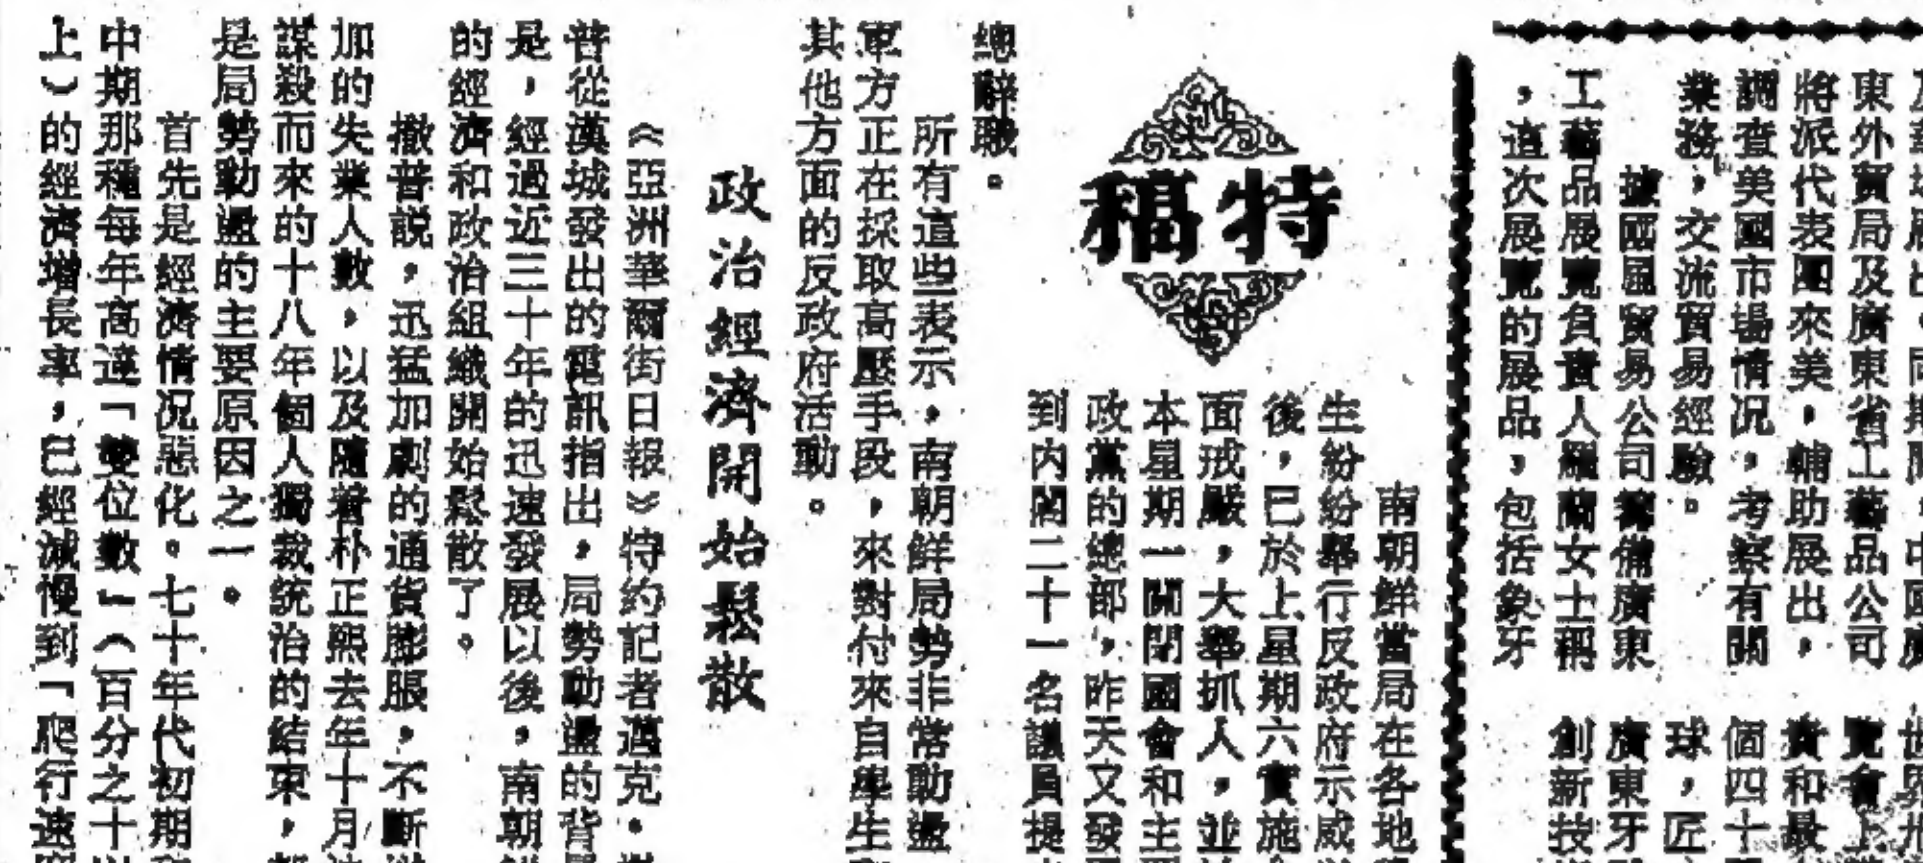 東外貿局及廣東省工藝品公司
將派代表團來美，輔助展出，
調查美國市場情況，考察有關
業務，交流貿易經驗。
據國風貿易公司籌備廣東
工藝品展覽負責人羅蘭女士稱
，這次展覽的展品，包括象牙
覽會上
貴和最
個四十
球，匠
廣東牙
創新技
特稿
南朝鮮當局在各地
生紛紛舉行反政府示威
後，已於上星期六實施
面戒嚴，大舉抓人，並
本星期一關閉國會和主
政黨的總部，昨天又發
到內閣二十一名議員提
總辭職。
所有這些表示，南朝鮮局勢非常動盪
軍方正在採取高壓手段，來對付來自學生
其他方面的反政府活動。
政治經濟開始鬆散
《亞洲華爾街日報》特約記者邁克·
普從漢城發出的電訊指出，局勢動盪的背
是，經過近三十年的迅速發展以後，南朝
的經濟和政治組織開始鬆散了。
撒普說，迅猛加劇的通貨膨脹，不斷
加的失業人數，以及隨着朴正熙去年十月
謀殺而來的十八年個人獨裁統治的結束，
是局勢動盪的主要原因之一。
首先是經濟情況惡化。七十年代初期
中期那種每年高達「雙位數」（百分之十以
上）的經濟增長率，已經減慢到「爬行速